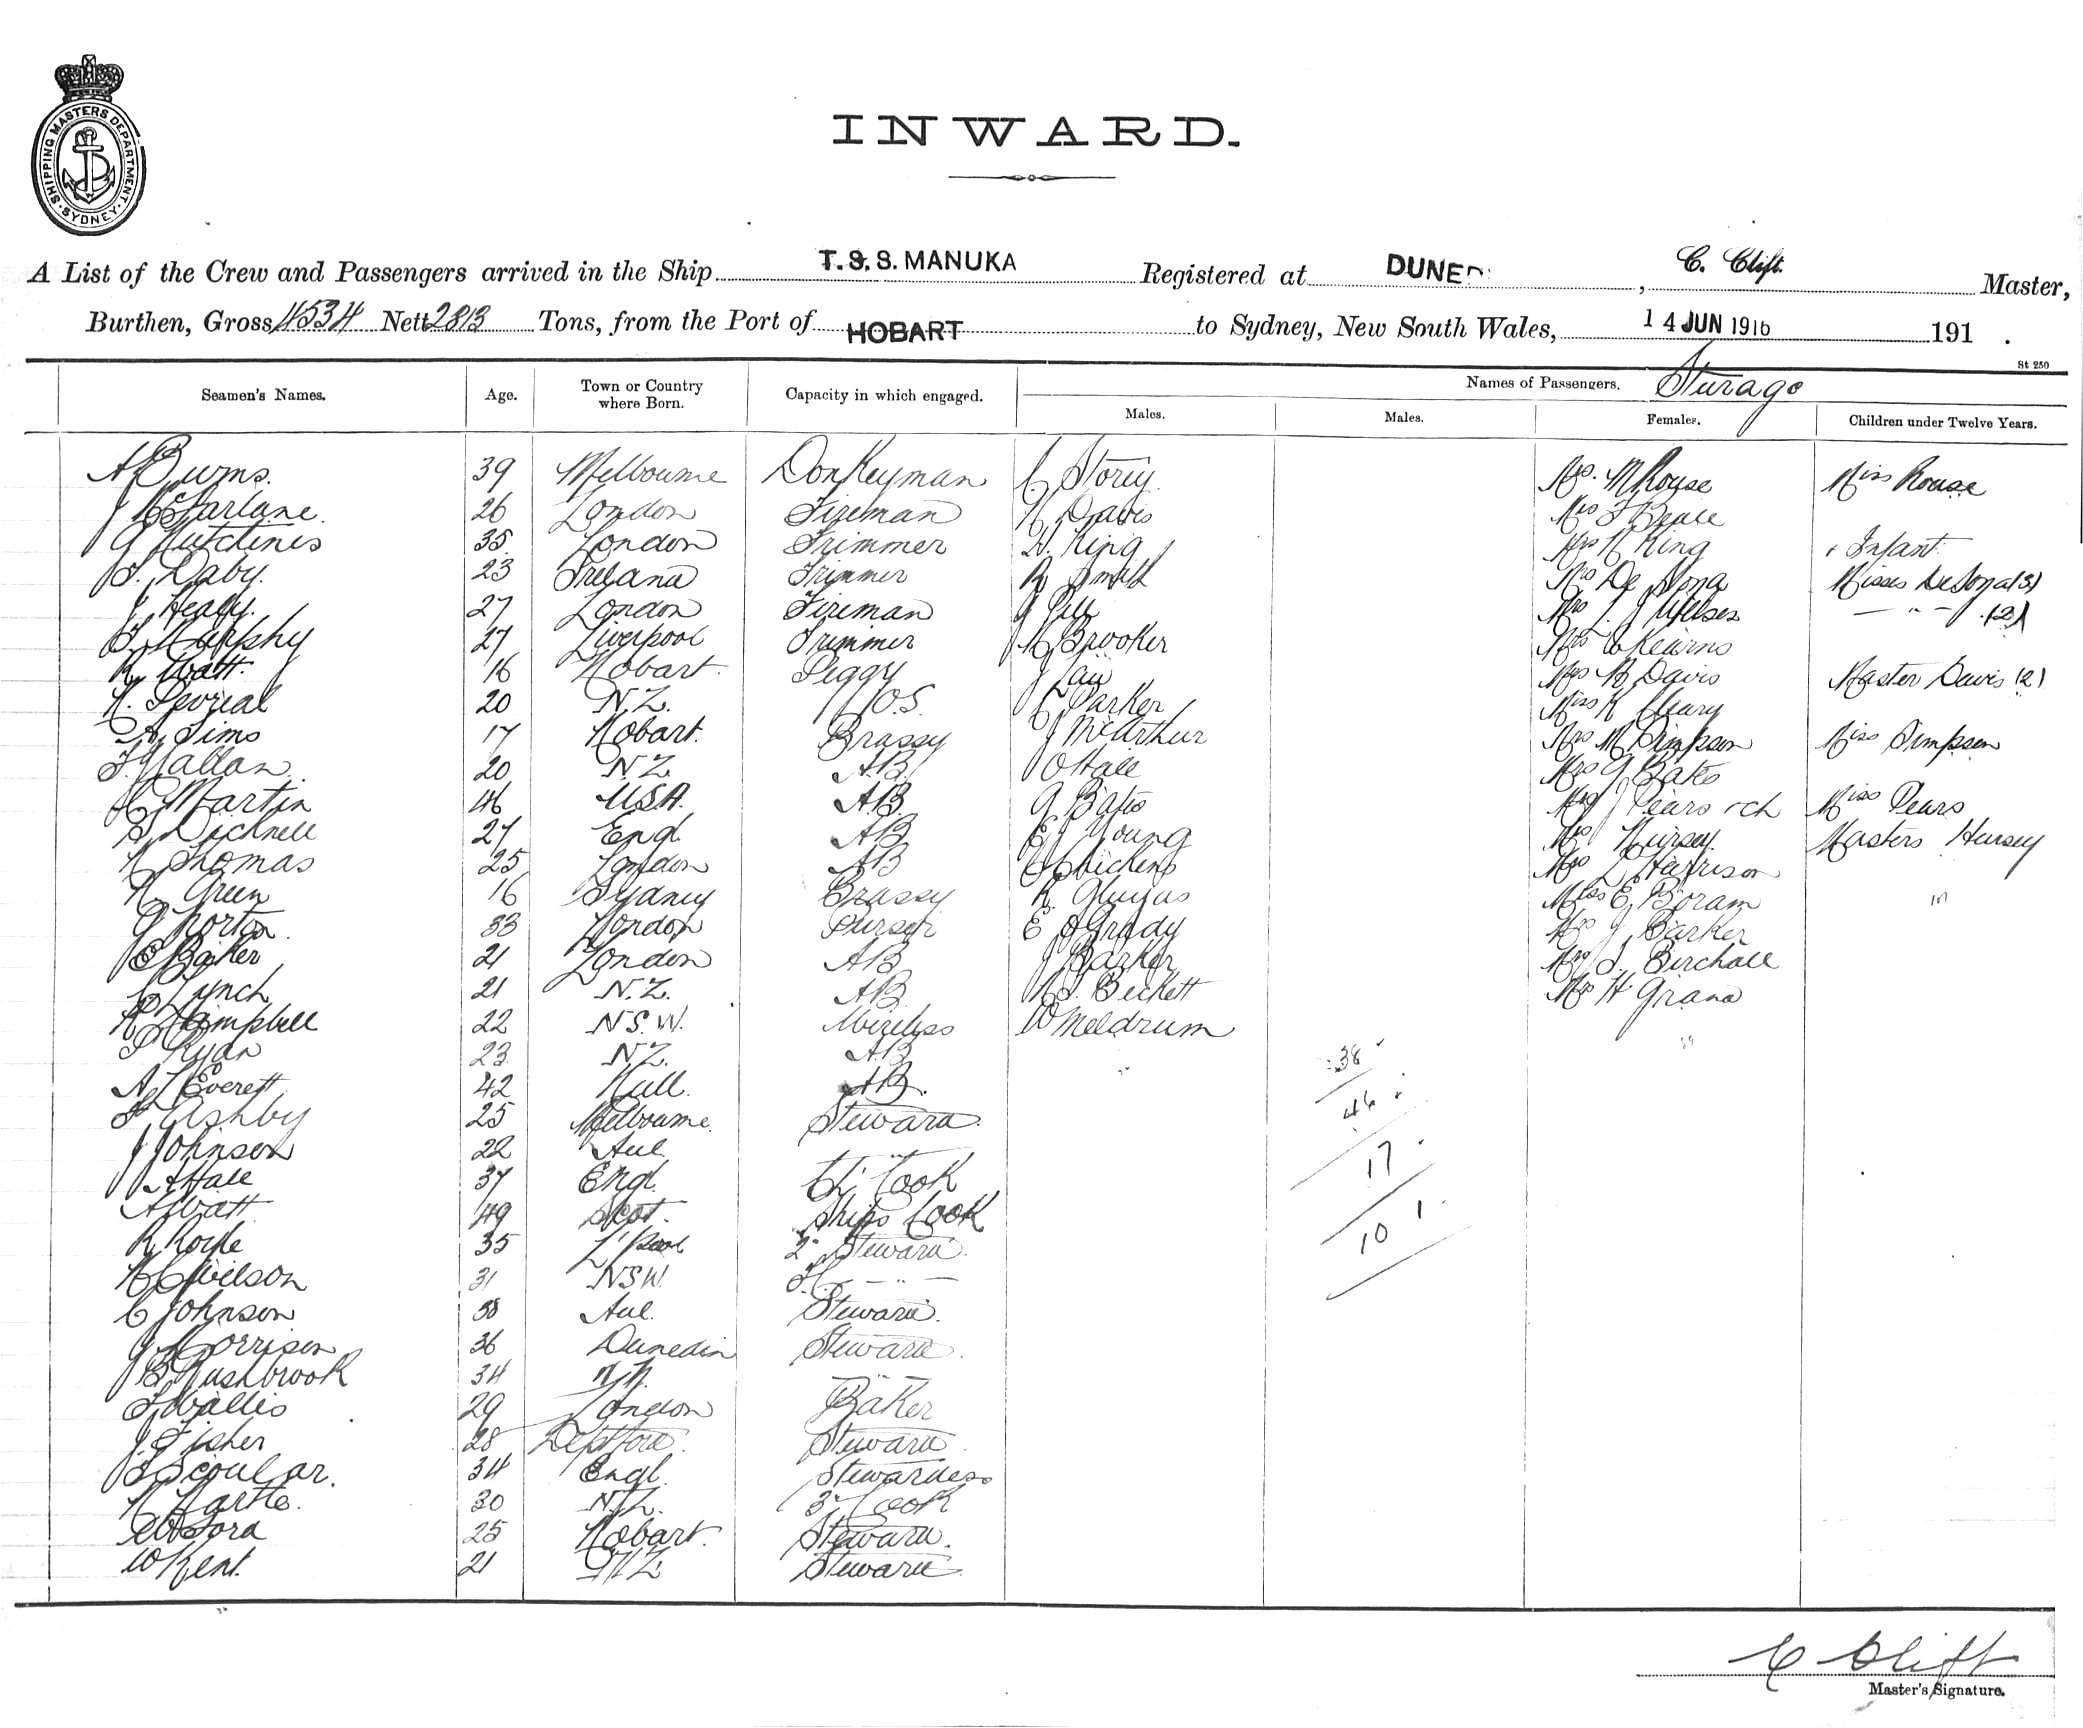 SHIPPING MASTERS DEPARTMENT · SYDNEY ·
INWARD.
A List of the Crew and Passengers arrived in the Ship T.S.S. MANUKA Registered at DUNED , C. Clift. Master,
Burthen, Gross 4534 Nett 2813 Tons, from the Port of HOBART to Sydney, New South Wales, 14 JUN 1916 191 .
St 250
Seamen's Names. Age. Town or Country where Born. Capacity in which engaged. Names of Passengers. Sturage
Males. Males. Females. Children under Twelve Years.
A Burns. 39 Melbourne Donkeyman C Storey Mrs. M Rouse Miss Rouse
J McFarlane 26 London Fireman H Davis Mrs F Beale
G Hutchins 35 London Trimmer H. King Mrs H King + Infant
Daby. 23 Ireland Trimmer R Smith Mrs De Sona Misses De Sona (3)
J Healy. 27 London Fireman J Mrs L J Wilson — " — (2)
Murphy 27 Liverpool Trimmer H Brooker Mrs C Kearns
R Watt. 16 Hobart. Peggy J Law Mrs B Davis Master Davis (2)
H. 20 N.Z. O.S. C Parker Miss K Cleary
A Sims 17 Hobart. Brassy J McArthur Mrs M Simpson Miss Simpson
Hallan 20 N.Z. A.B. O Hale Mrs G Bates
C Martin 46 USA. A.B. G Bates Mrs J Pears + ch Miss Pears
S Bicknell 27 Engl. A.B. E J Young Mrs Hursey Masters Hursey
H Thomas 25 London AB C Hickens Mrs L Harrison
H Green 16 Sydney Brassy R. Miss E Boram
G Norton 33 London Purser E O'Grady Mrs J Barker
E Baker 21 London AB J Barker Mrs J. Birchall
C Lynch 21 N.Z. AB H J. Beckett Mrs H Grana
R Campbell 22 N.S.W. Wireless W Meldrum
P Ryan 23 N.Z. A.B.
38
A J Everett 42 Hull. AB.
F Ashby 25 Melbourne. Steward
46
J Johnson 22 Aul "
17
A Hale 37 Engl. Ch. Cook
A Watt 49 Scot. Ships Cook
101
R Royle 35 L'Pool 2" Steward
H C Wilson 31 NSW. — " —
C Johnson 38 Aul. Steward.
J Morrison 36 Dunedin Steward
B Rushbrook 34 "
F Wallis 29 London Baker
J. Fisher 28 Deptford Steward
Scoular. 34 Engl. Stewardess
H Hartte. 30 N.Z. 3" Cook
W Ford 25 Hobart. Steward.
W Kent. 21 N.Z. Steward
C Clift
Master's Signature.